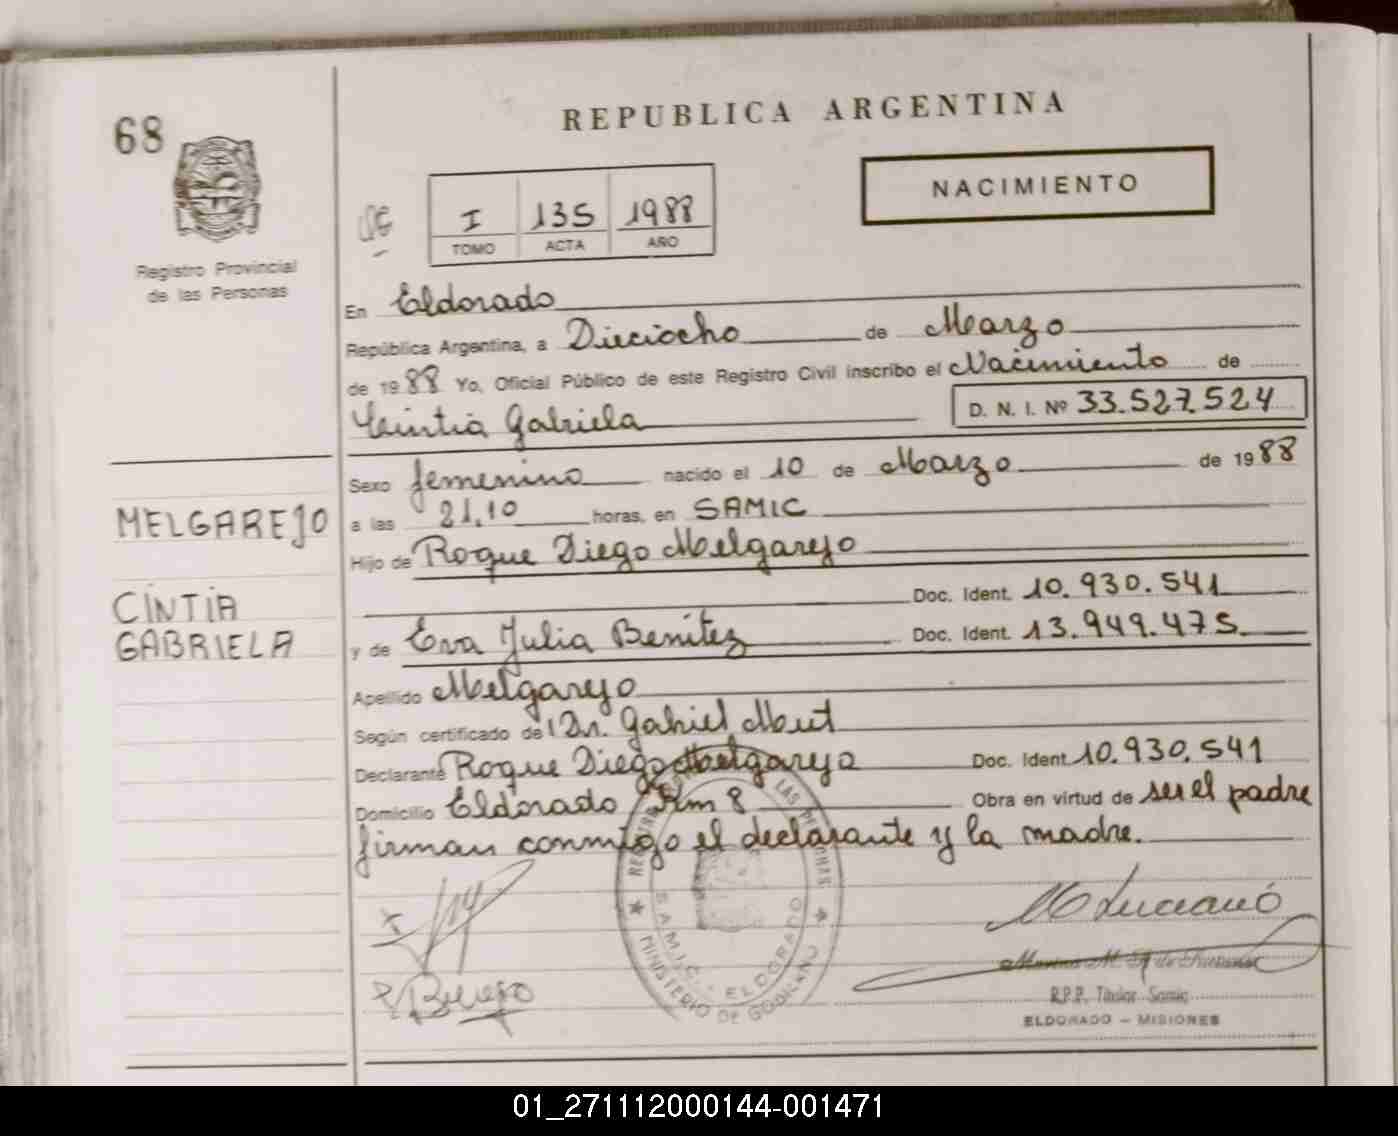 68
REPUBLICA ARGENTINA
NACIMIENTO
I 135 1988
TOMO ACTA AÑO
Registro Provincial
de las Personas
En Eldorado
República Argentina, a Dieciocho de Marzo
de 1988 Yo, Oficial Público de este Registro Civil inscribo el Nacimiento de
Cintia Gabriela D. N. I. Nº 33.527.524
Sexo femenino nacido el 10 de Marzo de 1988
MELGAREJO
a las 21,10 horas, en SAMIC
Hijo de Roque Diego Melgarejo
CINTIA
GABRIELA
Doc. Ident. 10.930.541
y de Eva Julia Benitez Doc. Ident. 13.949.475
Apellido Melgarejo
Según certificado de Dr. Gabriel
Declarante Roque Diego Melgarejo Doc. Ident 10.930.541
Domicilio Eldorado Km 8 Obra en virtud de ser el padre
firman conmigo el declarante y la madre.
LAS PERSONAS
S.A.M.I.C. - ELDORADO
MINISTERIO DE GOBIERNO
R.P.P. Titular Samic
ELDORADO - MISIONES
01_271112000144-001471